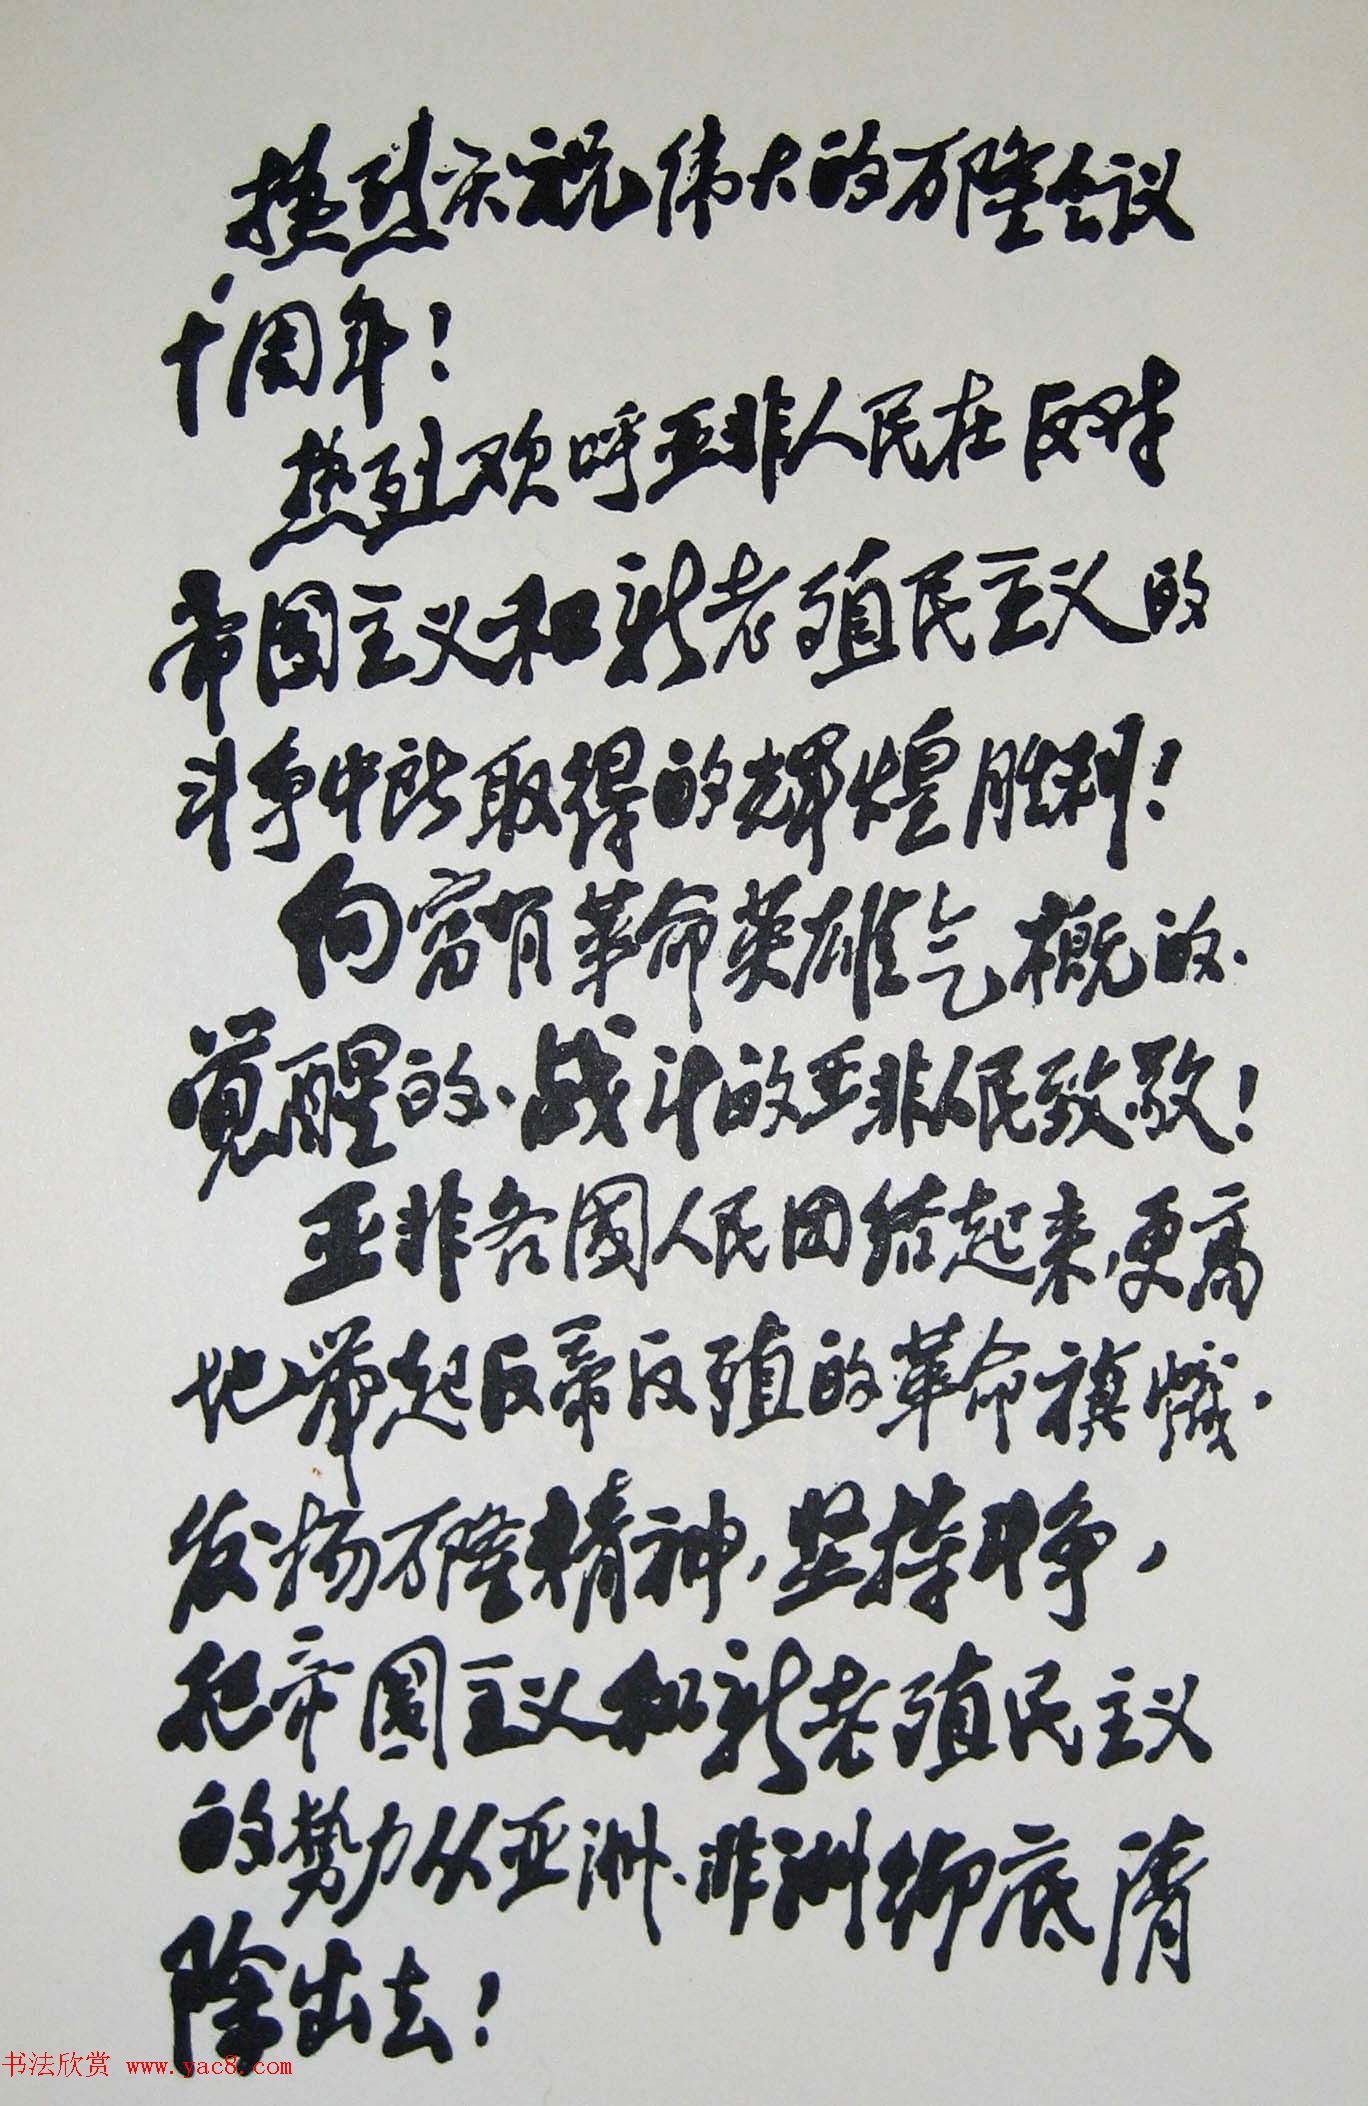 热烈庆祝伟大的万隆会议
十周年！
热烈欢呼亚非人民在反对
帝国主义和新老殖民主义的
斗争中所取得的辉煌胜利！
向富有革命英雄气概的、
觉醒的、战斗的亚非人民致敬！
亚非各国人民团结起来，更高
地举起反帝反殖的革命旗帜，
发扬万隆精神，坚持斗争，
把帝国主义和新老殖民主义
的势力从亚洲、非洲彻底清
除出去！
书法欣赏 www.yac8.com